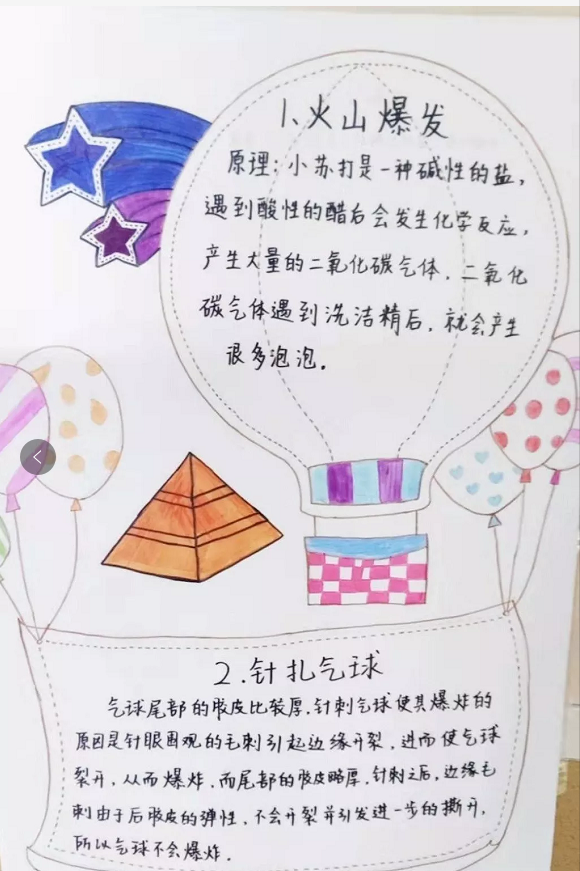 1、火山爆发
原理:小苏打是一种碱性的盐,
遇到酸性的醋后会发生化学反应,
产生大量的二氧化碳气体.二氧化
碳气体遇到洗洁精后,就会产生
很多泡泡.
2.针扎气球
气球尾部的胶皮比较厚.针刺气球使其爆炸的
原因是针眼围观的毛刺引起边缘开裂,进而使气球
裂开,从而爆炸.而尾部的胶皮略厚.针刺之后,边缘毛
刺由于后胶皮的弹性,不会开裂并引发进一步的撕开,
所以气球不会爆炸.